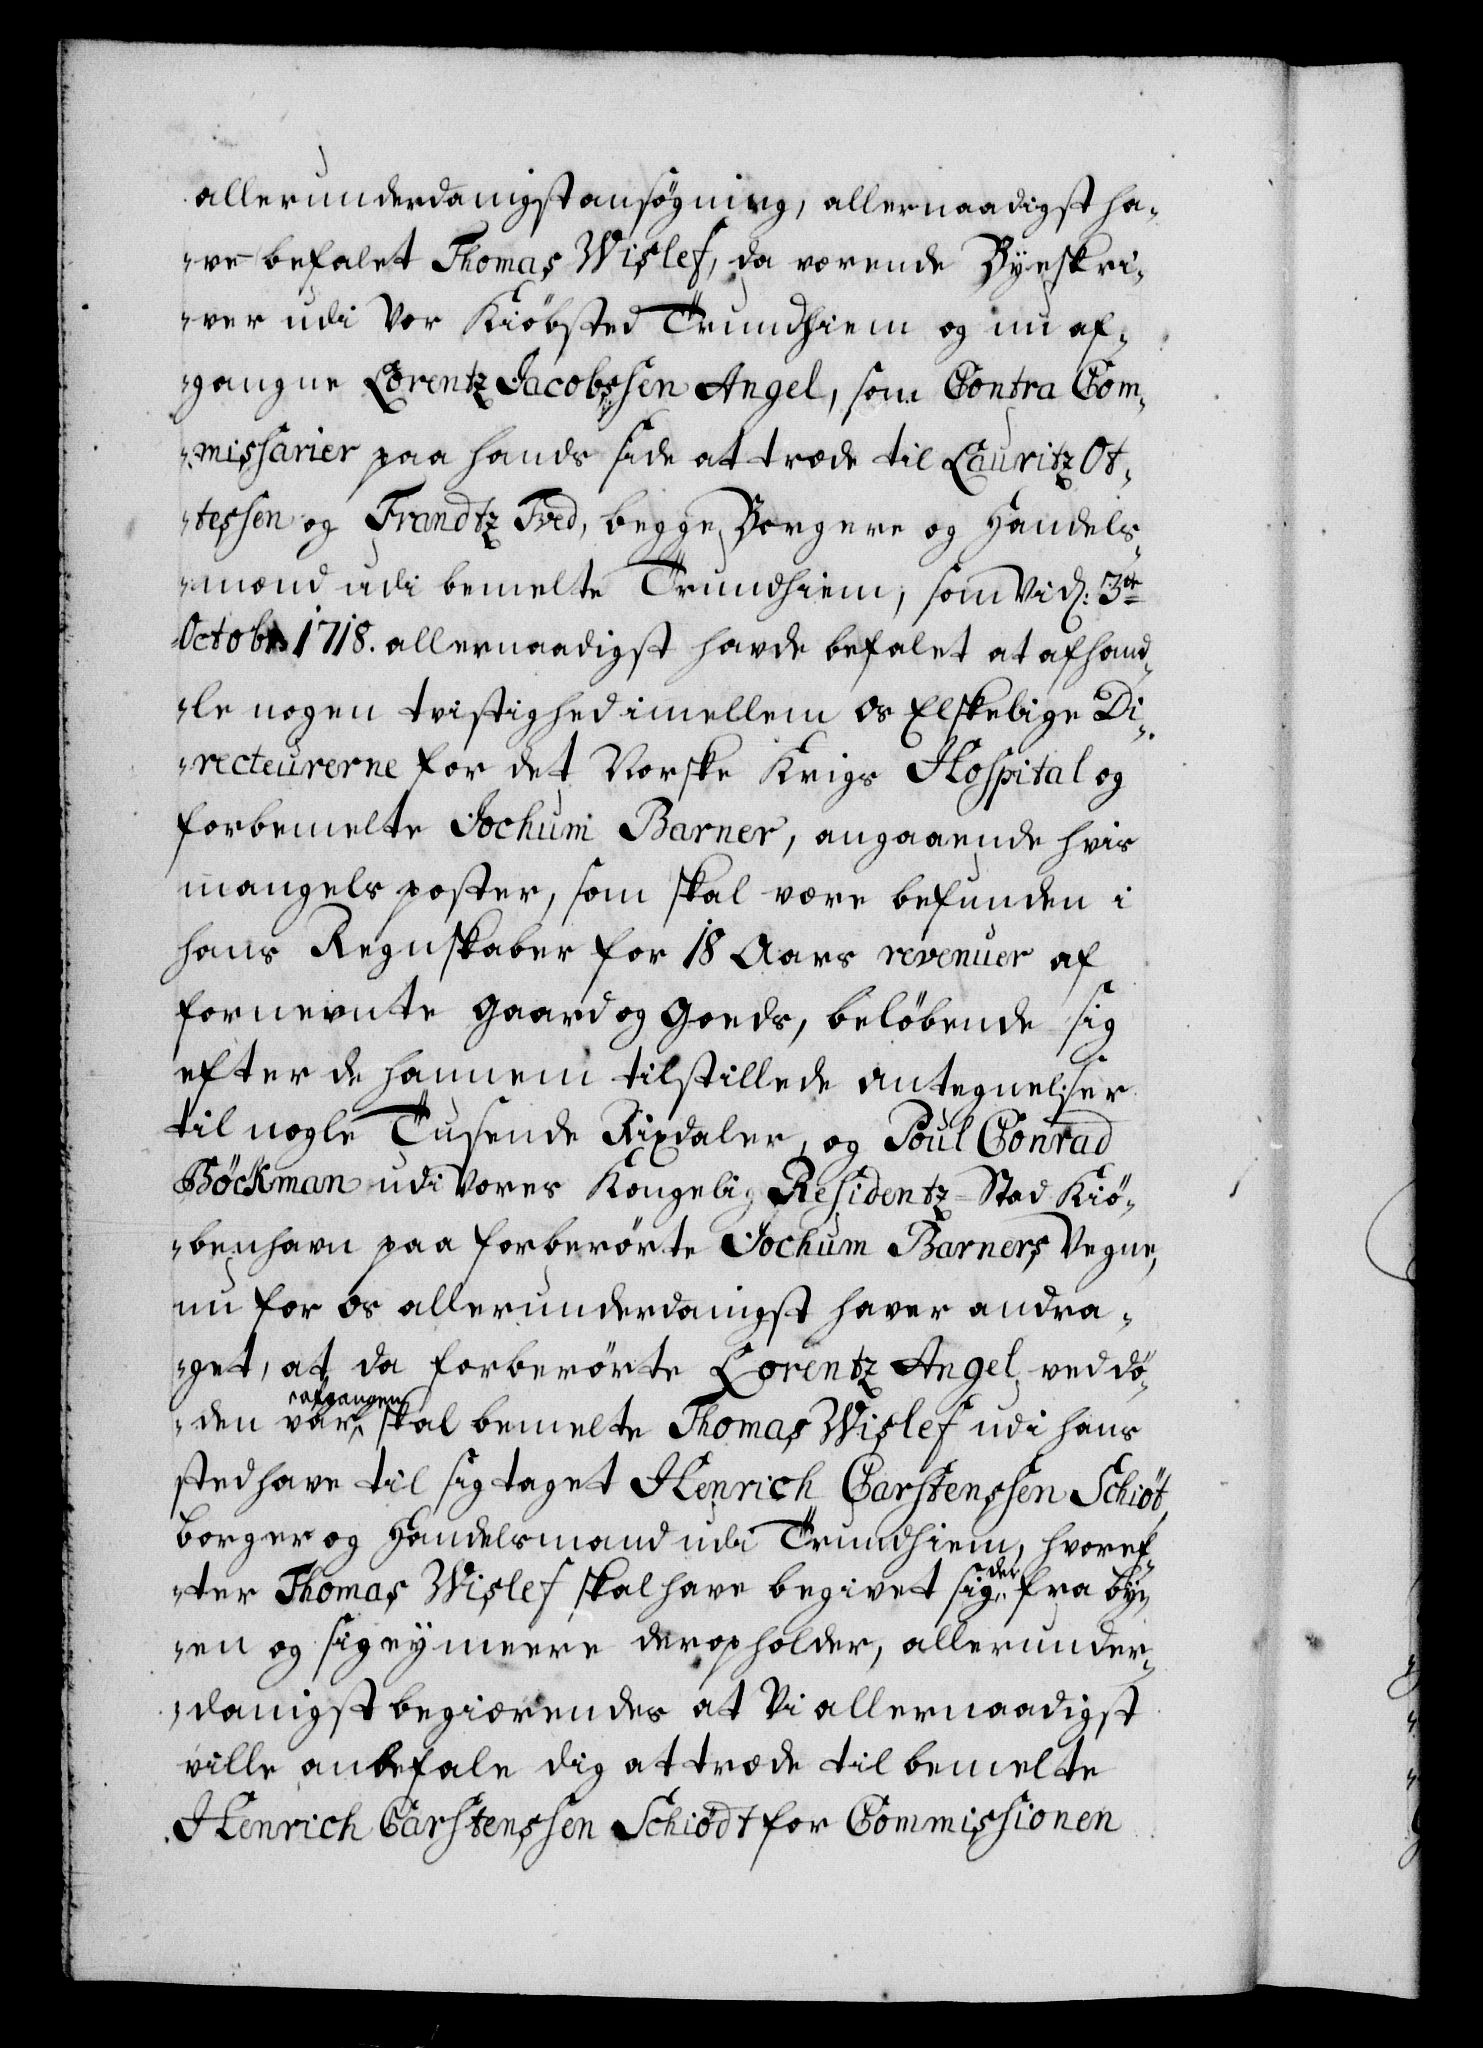 allerunderdanigst ansøgning, allernaadigst ha-
-ve befalet Thomas Wislef, da værende Byeskri-
-ver udi Vor Kiøbsted Trundhiem og nu af-
-gangne Lorentz Jacobssen Angel, som Contra Com-
-missarier paa hands side at træde til Lauritz Ot-
-tessen og Frandtz Tved, begge Borgere og Handels-
-mænd udi bemelte Trundhiem, som Vi d: 3de
Octobr 1718. allernaadigst havde befalet at afhand-
-le nogen tvistighed imellem os Elskelige Di-
-recteurerne for det Norske Krigs Hospital og
forbemelte Jochum Barner, angaaende hvis
mangels poster, som skal være befunden i
hans Regnskaber for 18 Aars revenuer af
fornevnte gaard og goeds, beløbende sig
efter de hannem tilstillede antegnelser
til nogle Tusende Rixdaler, og Poul Conrad
Böckman udi Vores Kongelig Residentz-Stad Kiø-
-benhavn paa forberørte Jochum Barners Vegne,
nu for os allerunderdanigst haver andra-
-get, at da forberørte Lorentz Angel ved dø-
-den var afgangen skal bemelte Thomas Wislef udi hans
sted have til sig taget Henrich Carstenssen Schiöt,
borger og Handelsmand udi Trundhiem, hvoref-
-ter Thomas Wislef skal have begivet sig der fra bÿ-
-en og sig eÿ meere der opholder, allerunder-
-danigst begiærendes at Vi allernaadigst
ville anbefale dig at træde til bemelte
Henrich Carstenssen Schiödt for Commissionen